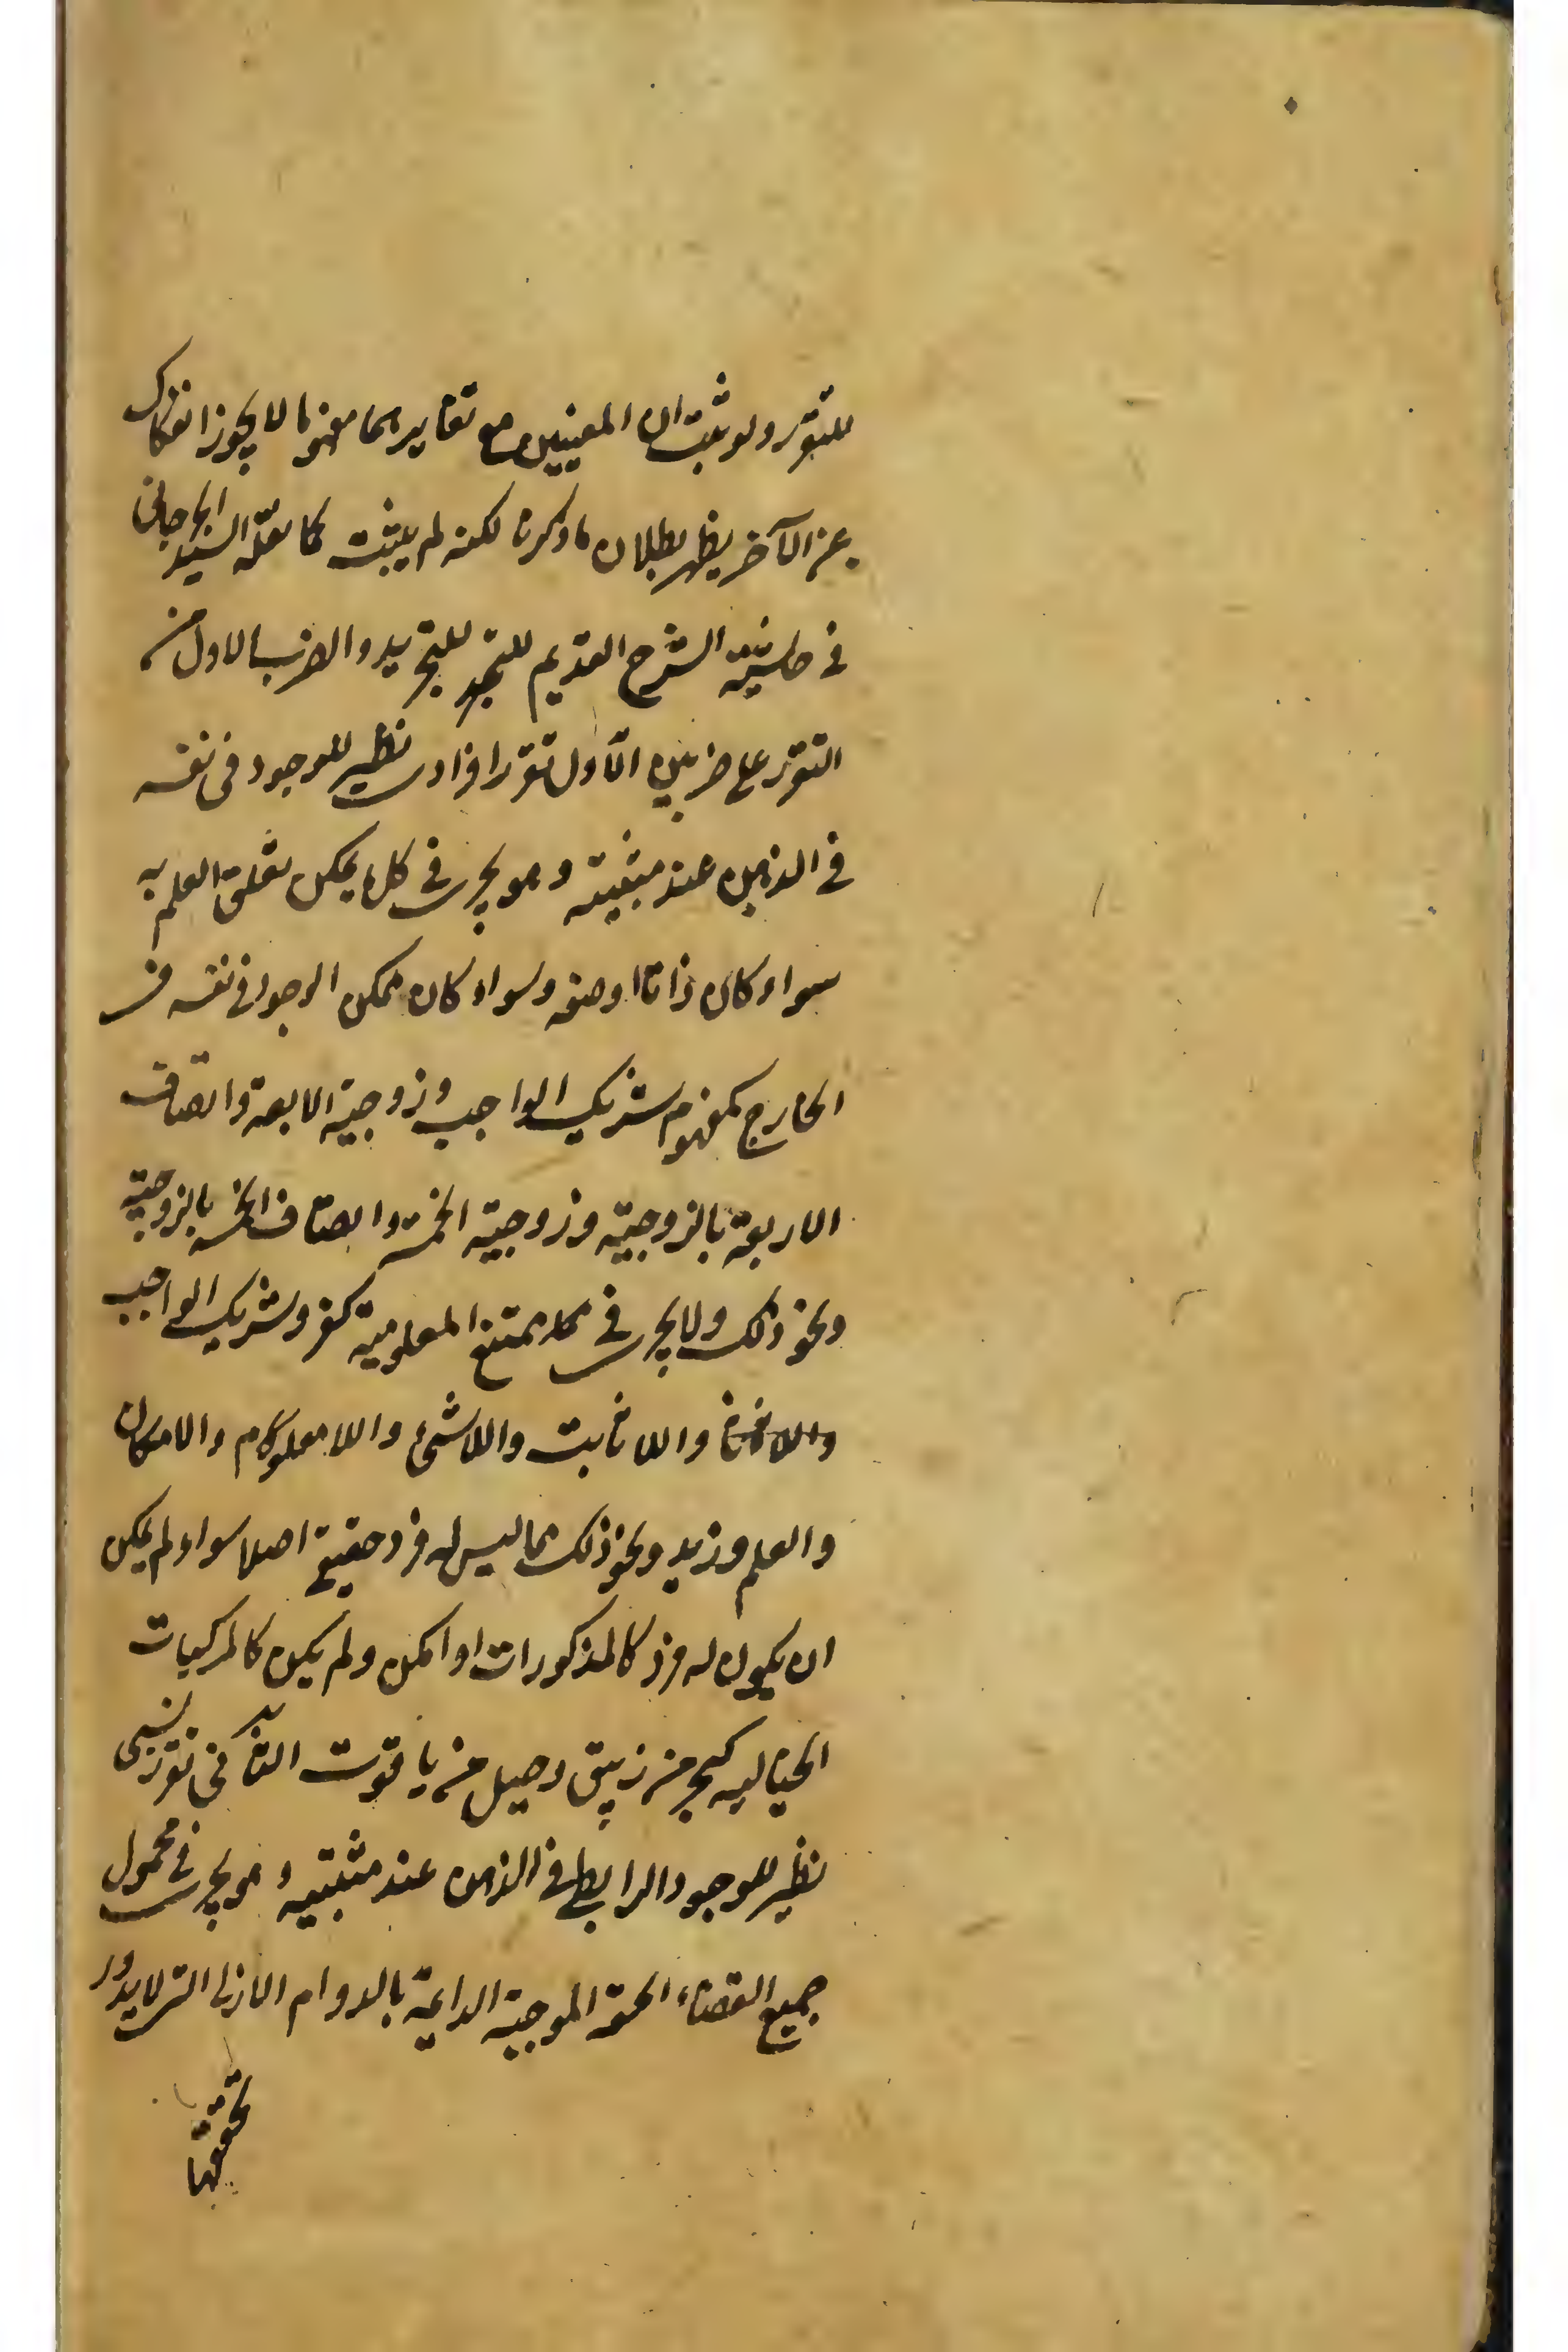 للتقرر ولو ثبت ان المعنيين مع تغايرهما مفهوما لا يجوز انفكاك
عن الآخر يظهر بطلان ما ذكرنا لكنه لم يثبت كما نقله السيد الجرجاني
في حاشية الشرح القديم للتجريد والضرب الاول من
التقرر على ضربين الاول تقرر افرادى نظير للوجود في نفسه
في الذهن عند مثبتيه وهو يجرى في كل ما يمكن تعلق العلم به
سواء كان ذاتا او صفة وسواء كان ممكن الوجود في نفسه في
الخارج كمفهوم شريك الواجب وزوجية الاربعة واتصاف
الاربعة بالزوجية وزوجية الخمسة واتصاف الخمسة بالزوجية
ونحو ذلك ولا يجرى في كل ممتنع المعلومية كفرد شريك الواجب
واللاثابت واللاشئ واللامعلوم واللاممكن
والعلم وزيد ونحو ذلك مما ليس له فرد حقيقي اصلا سواء لم يمكن
ان يكون له فرد كالمذكورات او امكن ولم يكن كالمركبات
الخيالية كبحر من زيبق وجبل من ياقوت الثاني تقرر نسبى
نظير للوجود الرابطي في الذهن عند مثبتيه وهو يجرى في محمول
جميع القضاء الحقة الموجبة الدايمة بالدوام الازلى التى لا يدور
تحققها